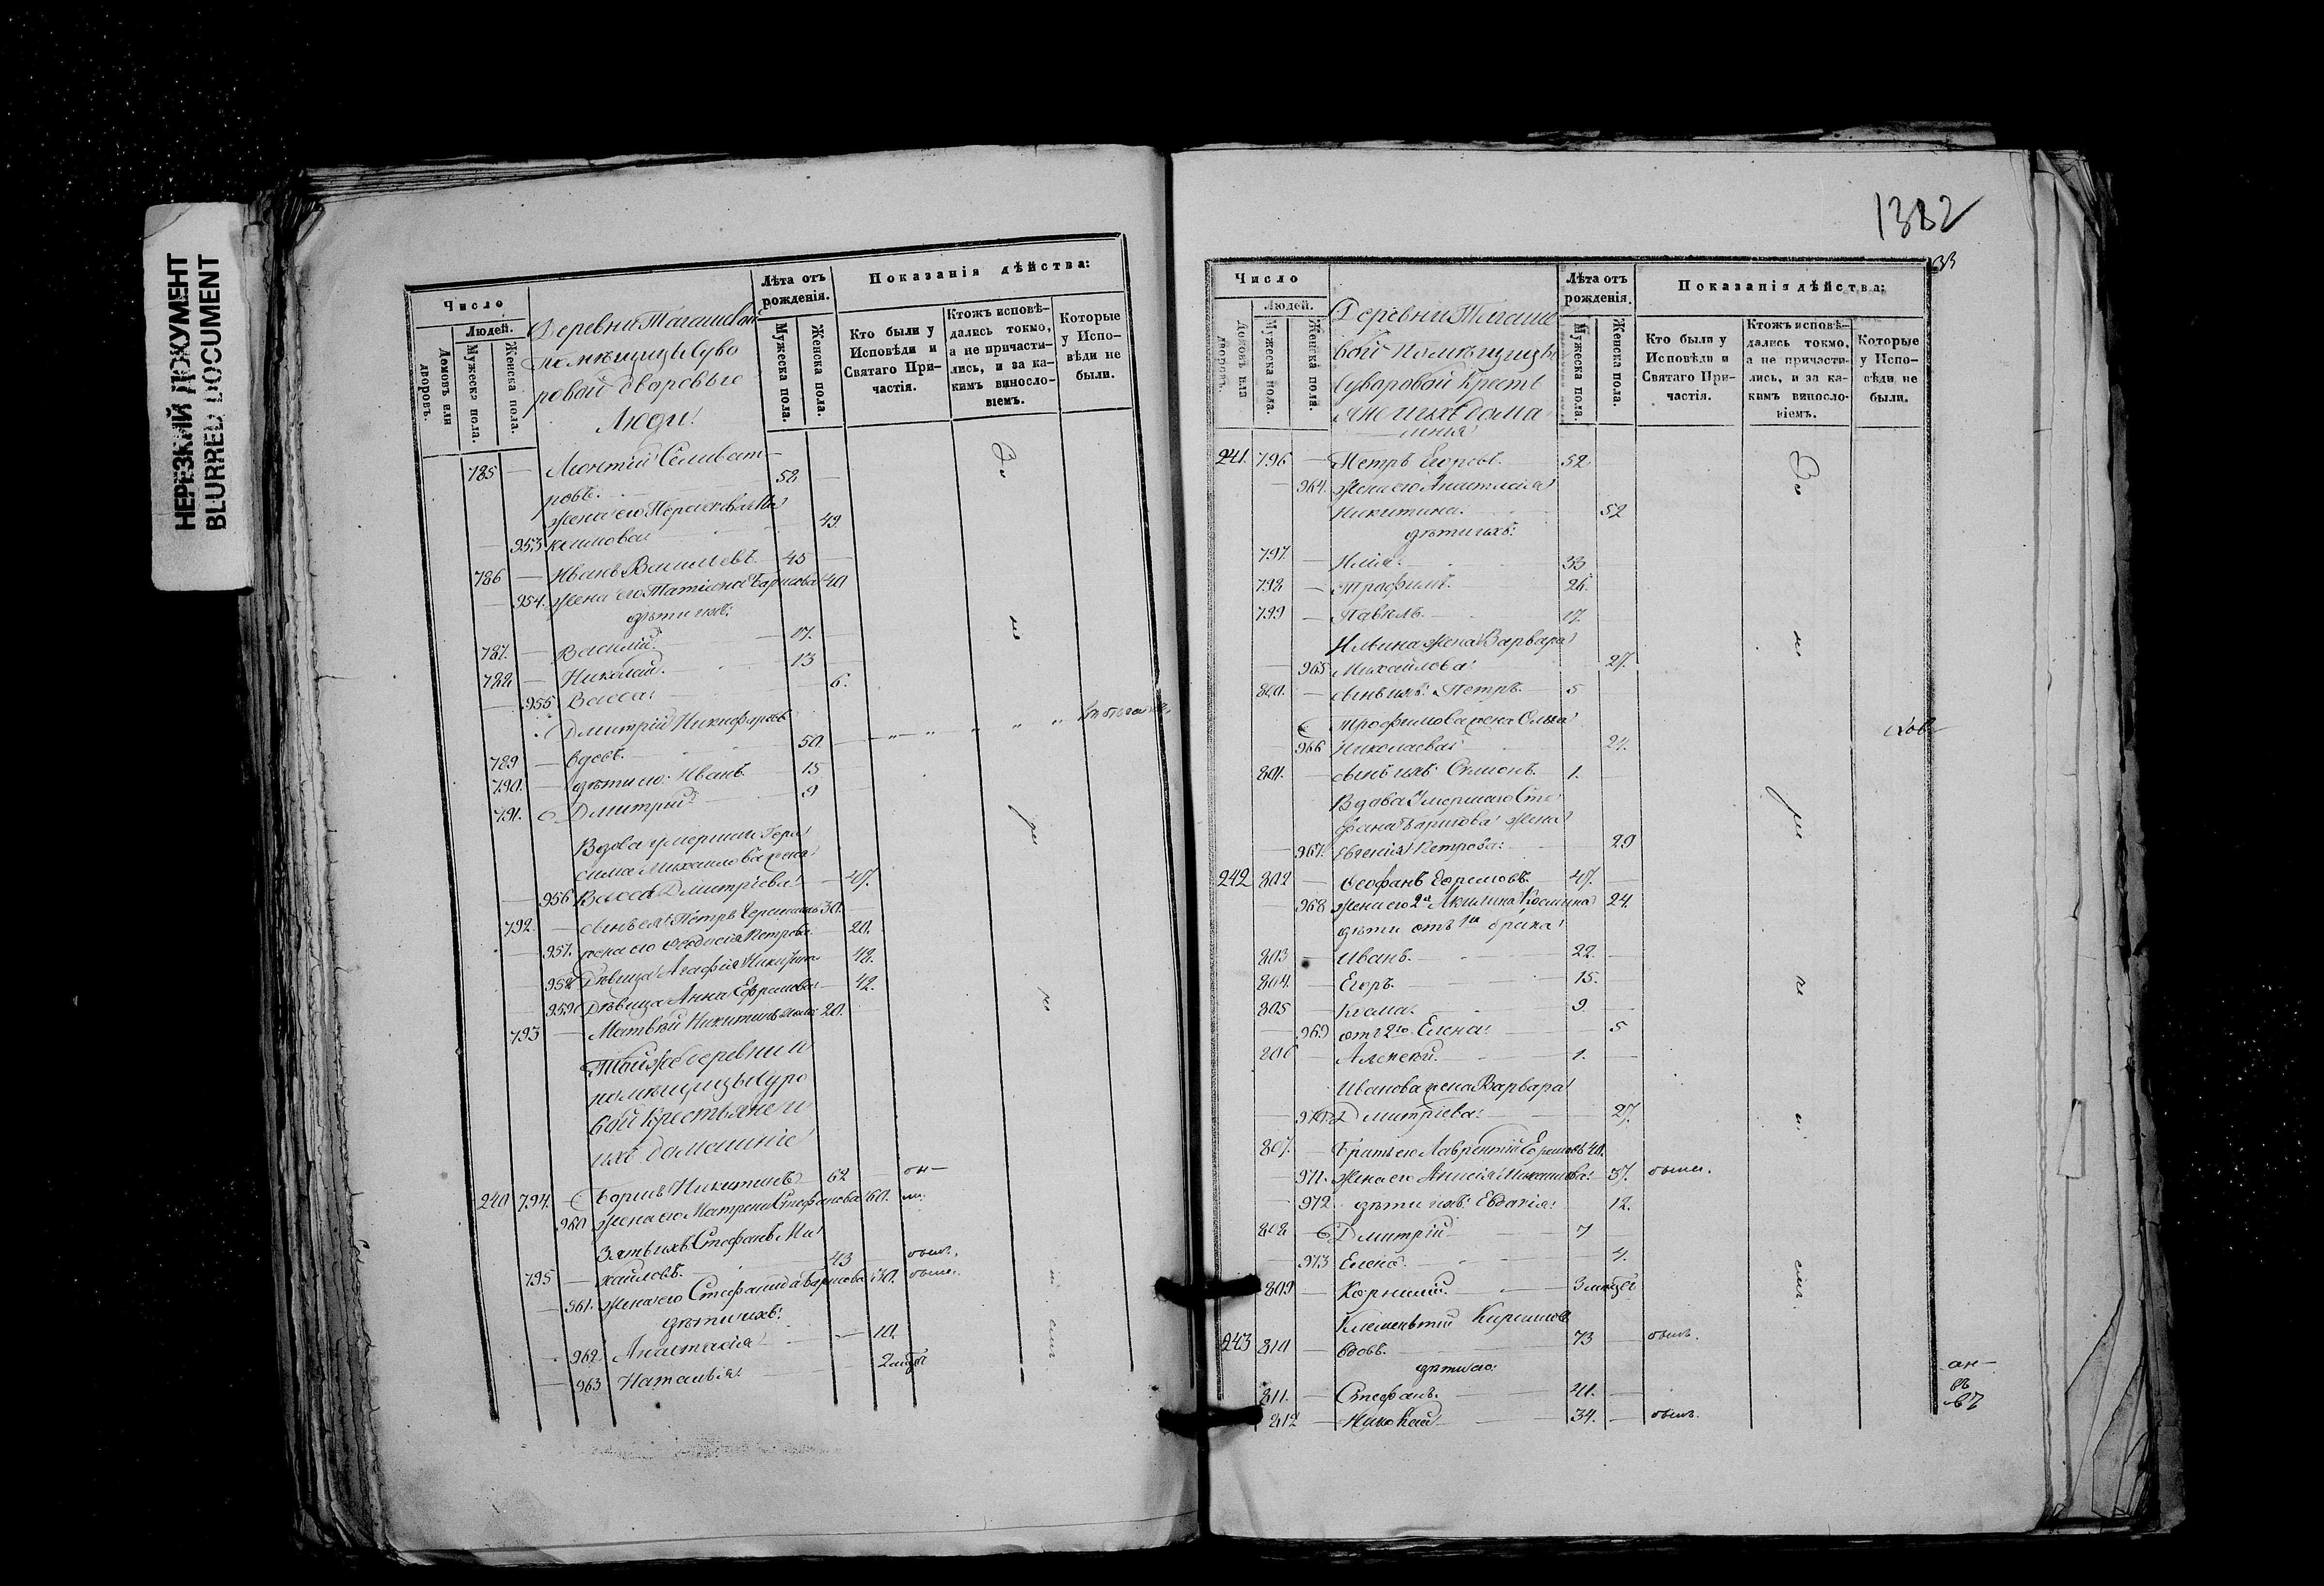 НЕРЕЗКИЙ ДОКУМЕНТ
BLURRED DOCUMENT
Число
Людей.
Домовъ или дворовъ.
Мужеска пола.
Женска пола.
Деревни Тагашевой
помѣщицы Суво
ровой дворовые
Люди:
Лѣта отъ рожденія.
Мужеска пола.
Женска пола.
Показанія дѣйства:
Кто были у Исповѣди и Святаго Причастія.
Ктожъ исповѣдались токмо, а не причастились, и за какимъ винословіемъ.
Которые у Исповѣди не были.
785 — Леонтій Селиват-
ровъ. 58 —
жена его Параскева Ма
953 кимова 49.
786 — Иванъ Васильевъ. 45 —
954. жена его Татіяна Борисова 40
дѣти ихъ:
787. — Василій. 17. —
788 — Николай. 13 —
955 Васса: 6.
Дмитрій Никифоровъ
789 — вдовъ. 50. —
790. — дѣти его: Иванъ. 15
791. Дмитрій 9
Вдова умершаго Гера
сима Михаилова жена
956 Васса Дмитріева: — 47.
792. — сынъ ея: Петръ Герасимовъ 30.
957. жена его Ѳеодосія Петрова 20.
958 Дѣвица Агафія Никитина 48.
959 Дѣвица Анна Ефремова 42.
793 — Матвѣй Никитинъ 20.
Той же деревни и
помѣщицы Суро
вой крестьяне и
ихъ домашніе
240 794. — Борисъ Никитинъ 62 —
960 жена его Матрена Стефанова 60.
Зять ихъ Стефанъ Ми
795 — хайловъ. 43
961. жена его Стефанида Борисова 40.
дѣти ихъ:
962. Анастасія — 10.
963 Наталья:
1382
33
Число
Людей.
Домовъ или дворовъ.
Мужеска пола.
Женска пола.
Деревни Тагаше
вой помѣщицы
Суворовой Кресть
яне и ихъ дома
шнія
Лѣта отъ рожденія.
Мужеска пола.
Женска пола.
Показанія дѣйства:
Кто были у Исповѣди и Святаго Причастія.
Ктожъ исповѣдались токмо, а не причастились, и за какимъ винословіемъ.
Которые у Исповѣди не были.
241. 796 — Петръ Егоровъ. 52
964. жена его Анастасія
Никитина. 52
дѣти ихъ:
797. — Илія. 33
798 — Трофимъ. 26.
799 — Павелъ. 17.
Ильина жена Варвара
965 Михайлова: 27.
800. — сынъ ихъ: Петръ. 5
Трофимова жена Ольга
966 Николаева 21.
801. — сынъ ихъ: Семенъ. 1.
Вдова Умершаго Сте
фана Борисова жена
967. Евгенія Петрова: 29
242 802 — Ѳеофанъ Ефремовъ. 47. —
968 жена его 2я Акилина Косьмина 24.
дѣти отъ 1го брака:
803 — Иванъ. 22. —
804. — Егоръ. 15. —
805 — Козма. 9. —
969 отъ 2го Елена: 5
806 — Алексѣй. 1. —
Иванова жена Варвара
970 Дмитріева: 27.
807. — Братъ его Лаврентій Ефремовъ 40.
971. жена его Анисія Михаилова: 37.
972 дѣти ихъ: Евдокія: 12.
808 — Дмитрій 7
973 Елена. 4.
809 — Корнилій. 3 мѣсц.
Клементій Кириловъ
243 810 — вдовъ. 73 —
дѣти его:
811. — Стефанъ. 41. —
812 — Николай 34. —